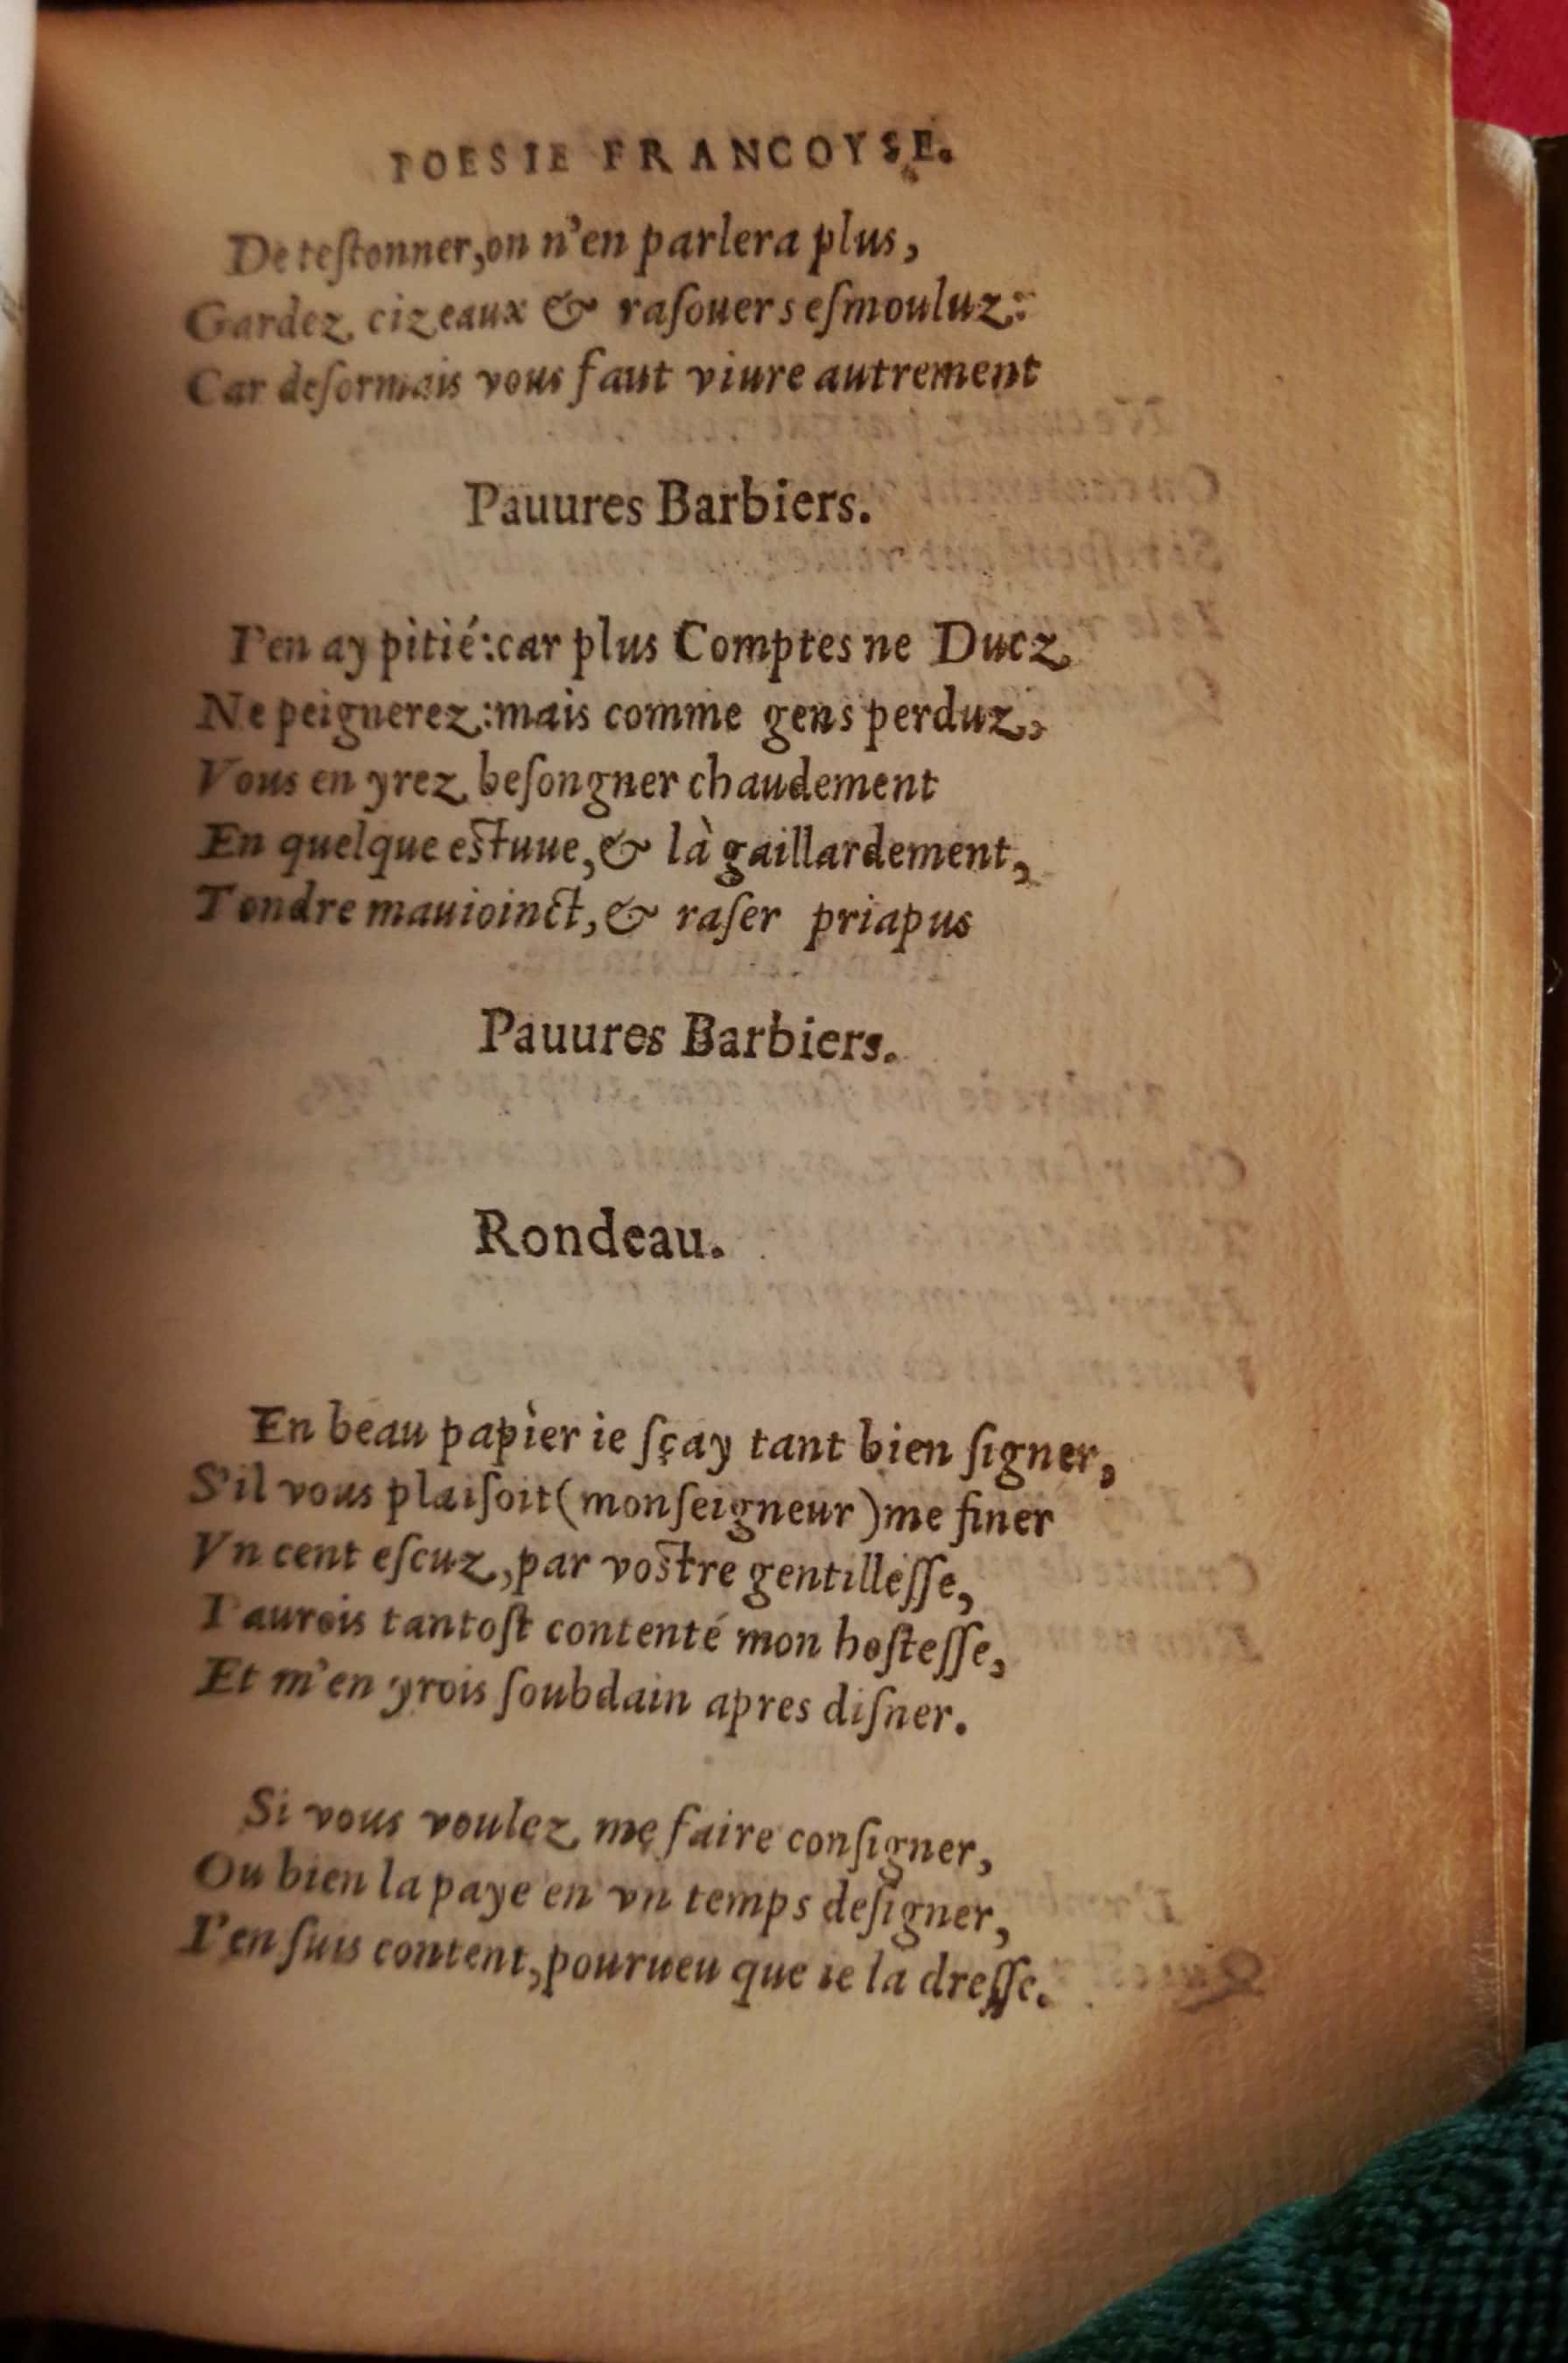 POESIE FRANCOYSE.
De teſtonner,on n'en parlera plus,
Gardez cizeaux & raſouers eſmouluz:
Car deſormais vous faut viure autrement
Pauures Barbiers.
I'en ay pitié:car plus Comptes ne Ducz
Ne peignerez:mais comme gens perduz,
Vous en yrez beſongner chaudement
En quelque estuue,& là gaillardement,
Tondre mauioinct,& raſer priapus
Pauures Barbiers.
Rondeau.
En beau papier ie ſçay tant bien ſigner,
S'il vous plaiſoit(monſeigneur)me finer
Vn cent eſcuz,par vostre gentilleſſe,
I'aurois tantoſt contenté mon hoſteſſe,
Et m'en yrois ſoubdain apres diſner.
Si vous voulez me faire conſigner,
Ou bien la paye en vn temps deſigner,
I'en ſuis content,pourueu que ie la dreſſe.